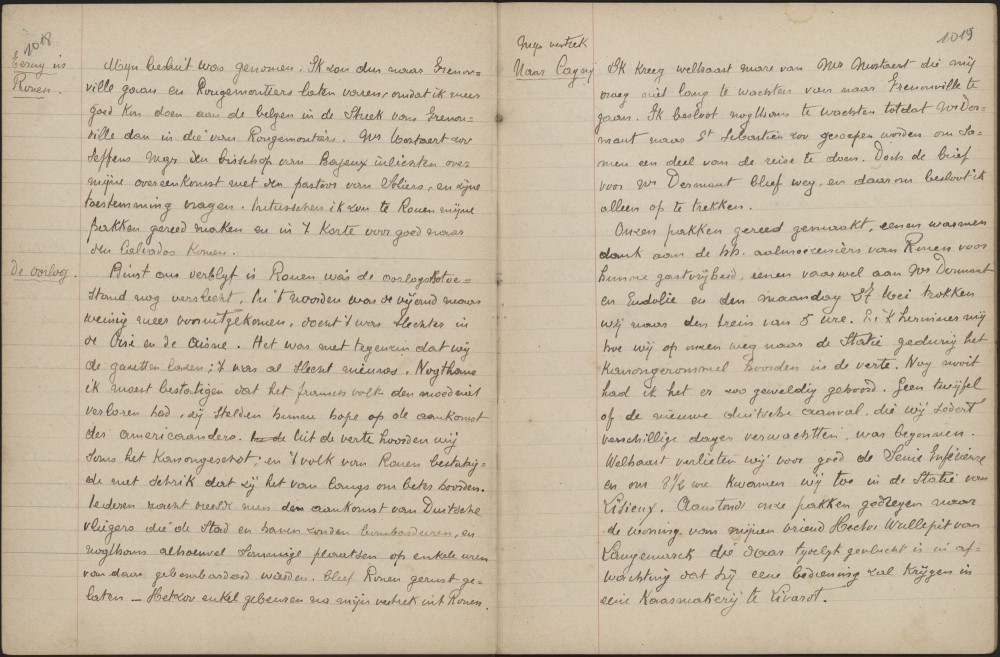 1018
Terug in
Rouen.
Mijn besluit was genomen. Ik zou dus naar Frenou-
ville gaan en Rougemontiers laten varen, omdat ik meer
goed kon doen aan de belgen in de streek van Frenou-
ville dan in die van Rougemontiers. Mr Mostaert zou
seffens Mgr den bisschop van Bayeux inlichten over
mijne overeenkomst met den pastoor van, en zijne
toestemming vragen. Intusschen ik zou te Rouen mijne
pakken gereed maken en in 't korte voor goed naar
den Calvados komen.
De oorlog.
Binst ons verblijf in Rouen was de oorlogstoe-
stand nog verslecht. In 't noorden was de vijand maar
weinig meer vooruitgekomen, doch 't was slechter in
de Oise en de Aisne. Het was met tegenzin dat wij
de gazetten lazen; 't was al slecht nieuws. Nogthans
ik moest bestatigen dat het fransch volk den moed niet
verloren had, zij stelden hunne hope op de aankomst
der americaanders. Uit de verte hoorden wij
soms het kanongeschot; en 't volk van Rouen bestatig-
de met schrik dat zij het van langs om beter hoorden.
Iederen nacht vreesde men den aankomst van Duitsche
vliegers die de stad en haven zouden bombardeeren, en
nogthans alhoewel sommige plaatsen op enkele uren
van daar gebombardeerd wierden, bleef Rouen gerust ge-
laten — Het zou enkel gebeuren na mijn vertrek uit Rouen.
1019
Mijn vertrek
Naar Cagny
Ik kreeg welhaast mare van Mr Mostaert die mij
vroeg niet lang te wachten van naar Frenouville te
gaan. Ik besloot nogthans te wachten totdat Mr Der-
maut naar St Sebastien zou geroepen worden om sa-
men een deel van de reise te doen. Doch de brief
voor Mr Dermaut bleef weg, en daarom besloot ik
alleen op te trekken.
Onzen pakken gereed gemaakt, eenen warmen
dank aan de hh. aalmoezeniers van Rouen voor
hunne gastvrijheid, eenen vaarwel aan Mr Dermaut
en Eudolie en den maandag 27 Mei trokken
wij naar den trein van 5 ure. En 'k herinner mij
hoe wij op onzen weg naar de Statie gedurig het
kanongerommel hoorden in de verte. Nog nooit
had ik het er zoo geweldig gehoord. Geen twijfel
of de nieuwe duitsche aanval, die wij sedert
verschillige dagen verwachtten, was begonnen.
Welhaast verlieten wij voor goed de Seine Inférieure
en om 8½ ure kwamen wij toe in de Statie van
Lisieux. Aanstonds onze pakken gedregen naar
de woning van mijnen vriend Hector Wullepit van
Langemarck die daar tijdelijk gevlucht is in af-
wachting dat hij eene bediening zal krijgen in
eene kaasmakerij te Livarot.